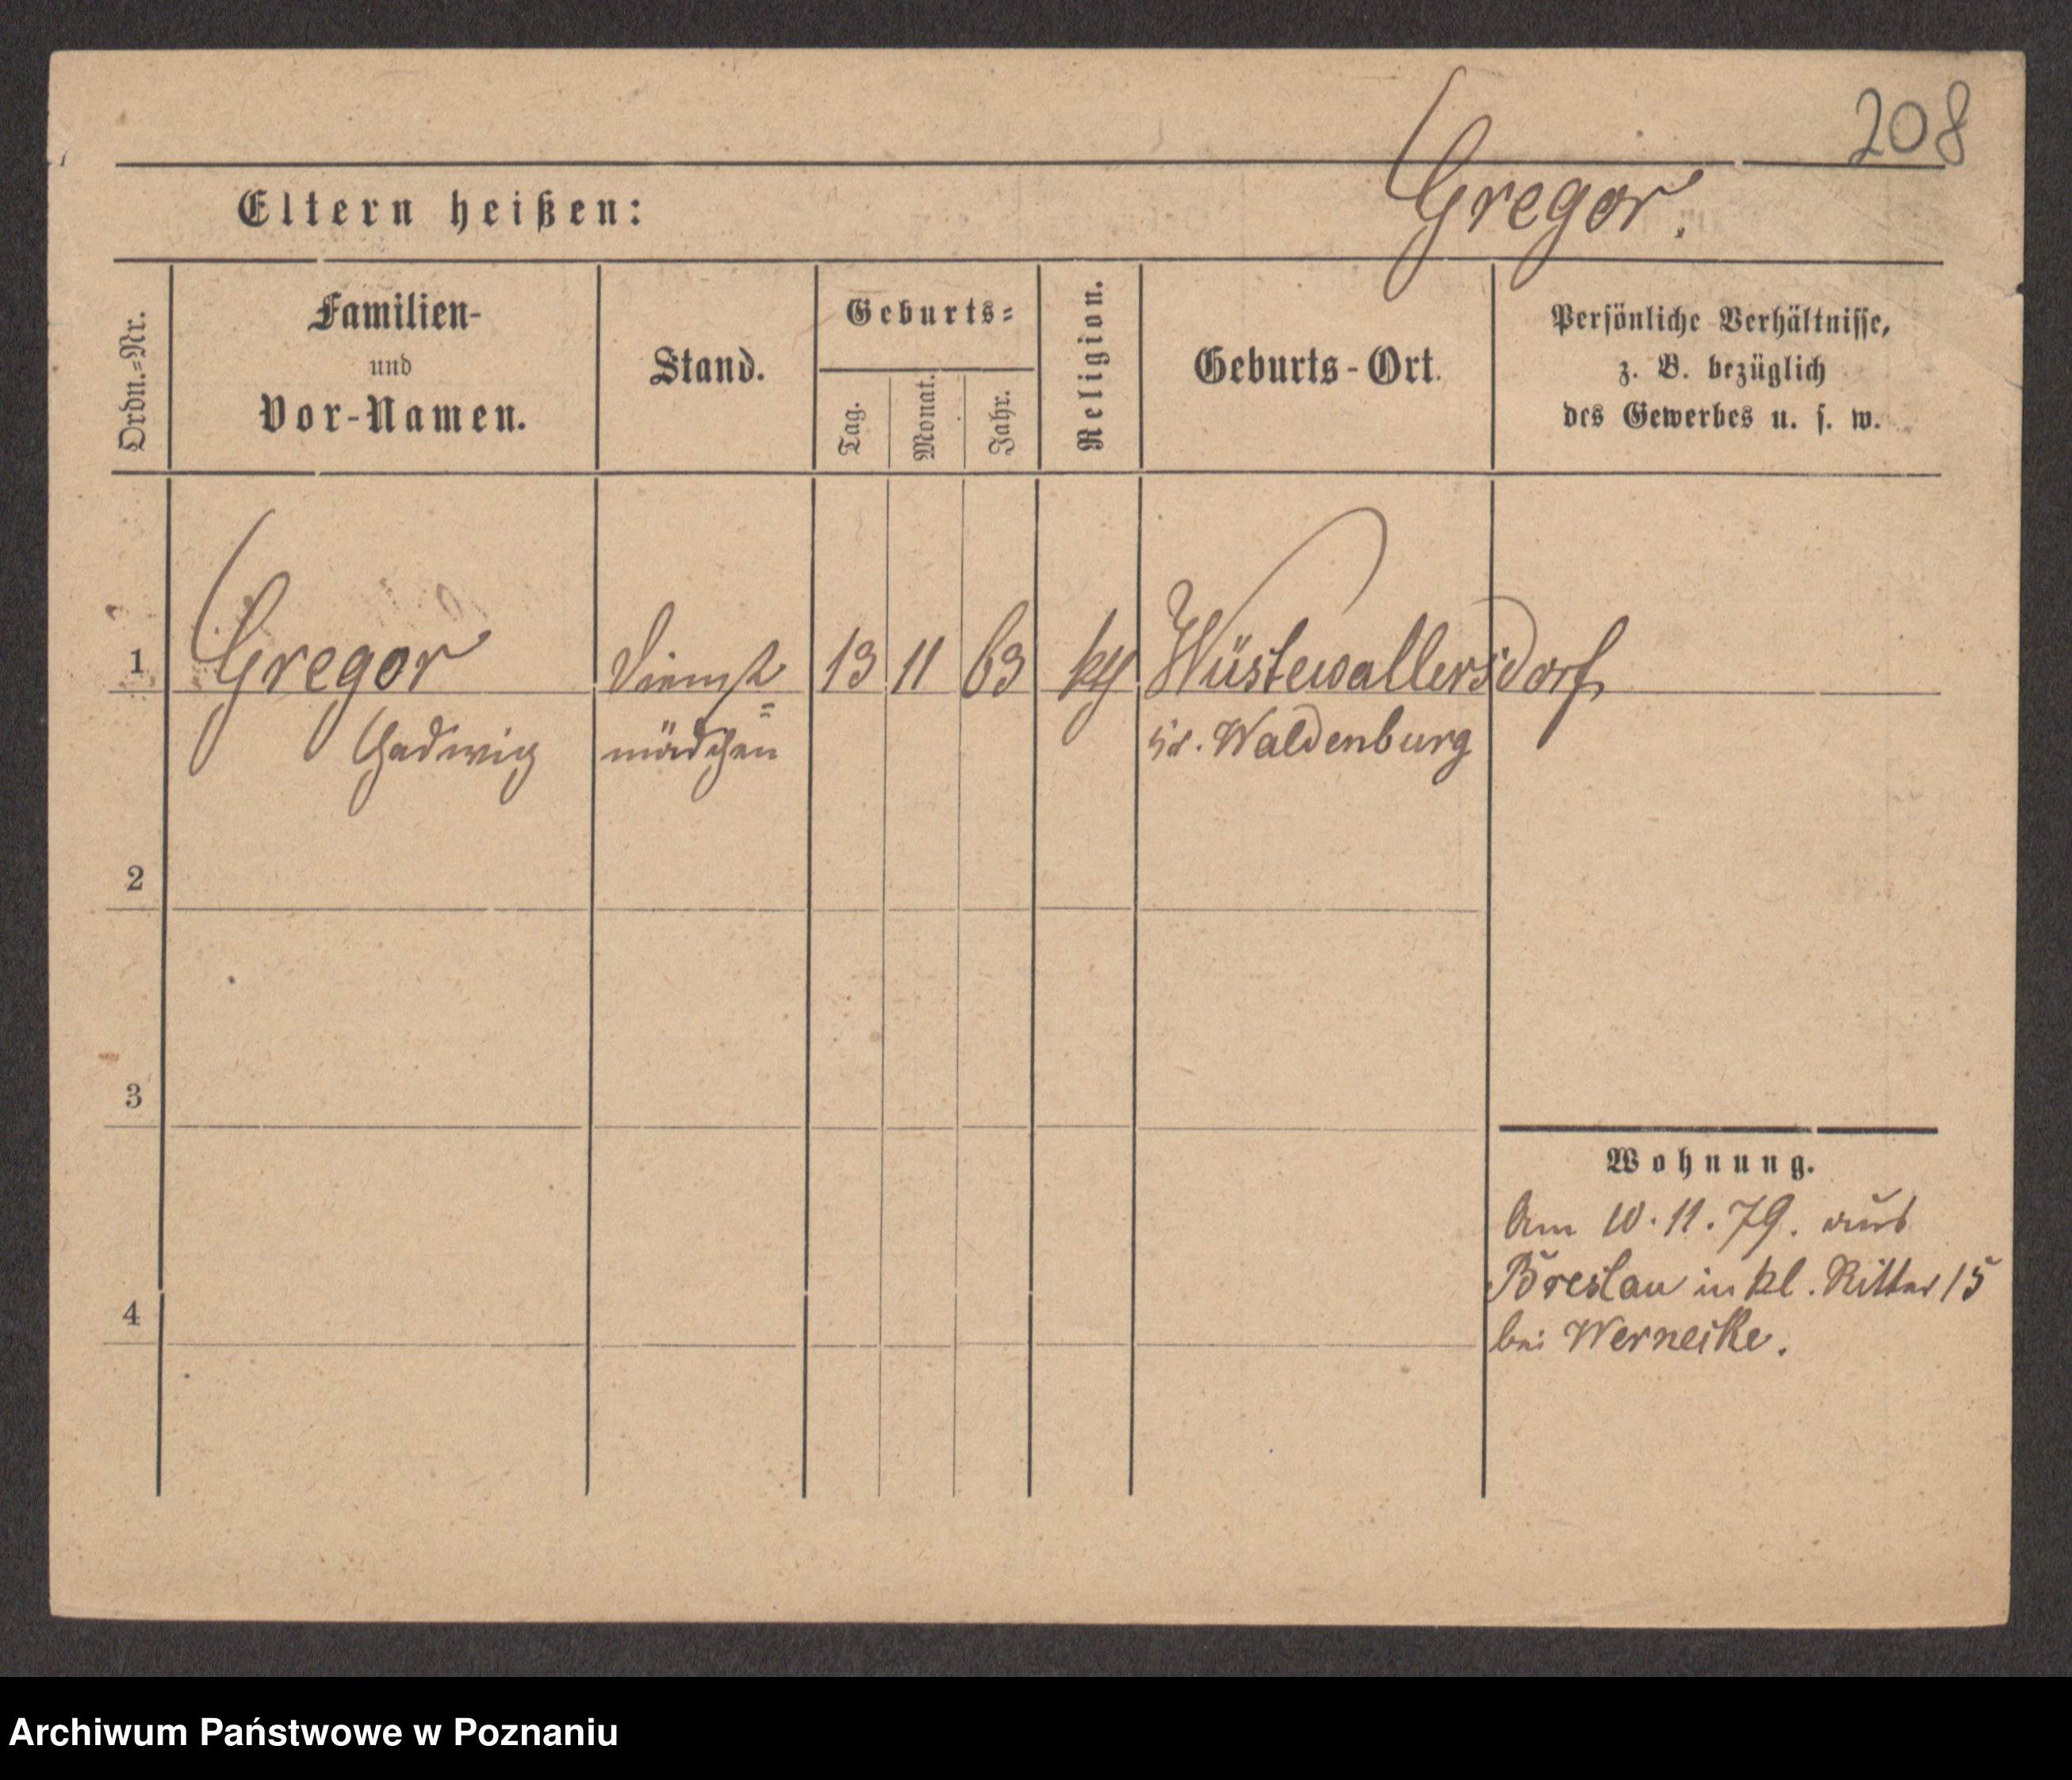 208
Eltern heißen:
Gregor.
Ordn.=Nr.
Familien-
und
Vor-Namen.
Stand.
Geburts=
Tag.
Monat.
Jahr.
Religion.
Geburts-Ort.
Persönliche Verhältnisse,
z. B. bezüglich
des Gewerbes u. s. w.
1
Gregor
Dienst 13 11 63 Wüstewallersdorf
=
Hedwig mädchen Waldenburg
2
3
4
Wohnung.
Am 10.11.79. aus
Breslau in kl. Ritter 15
bei Werneike.
Archiwum Państwowe w Poznaniu